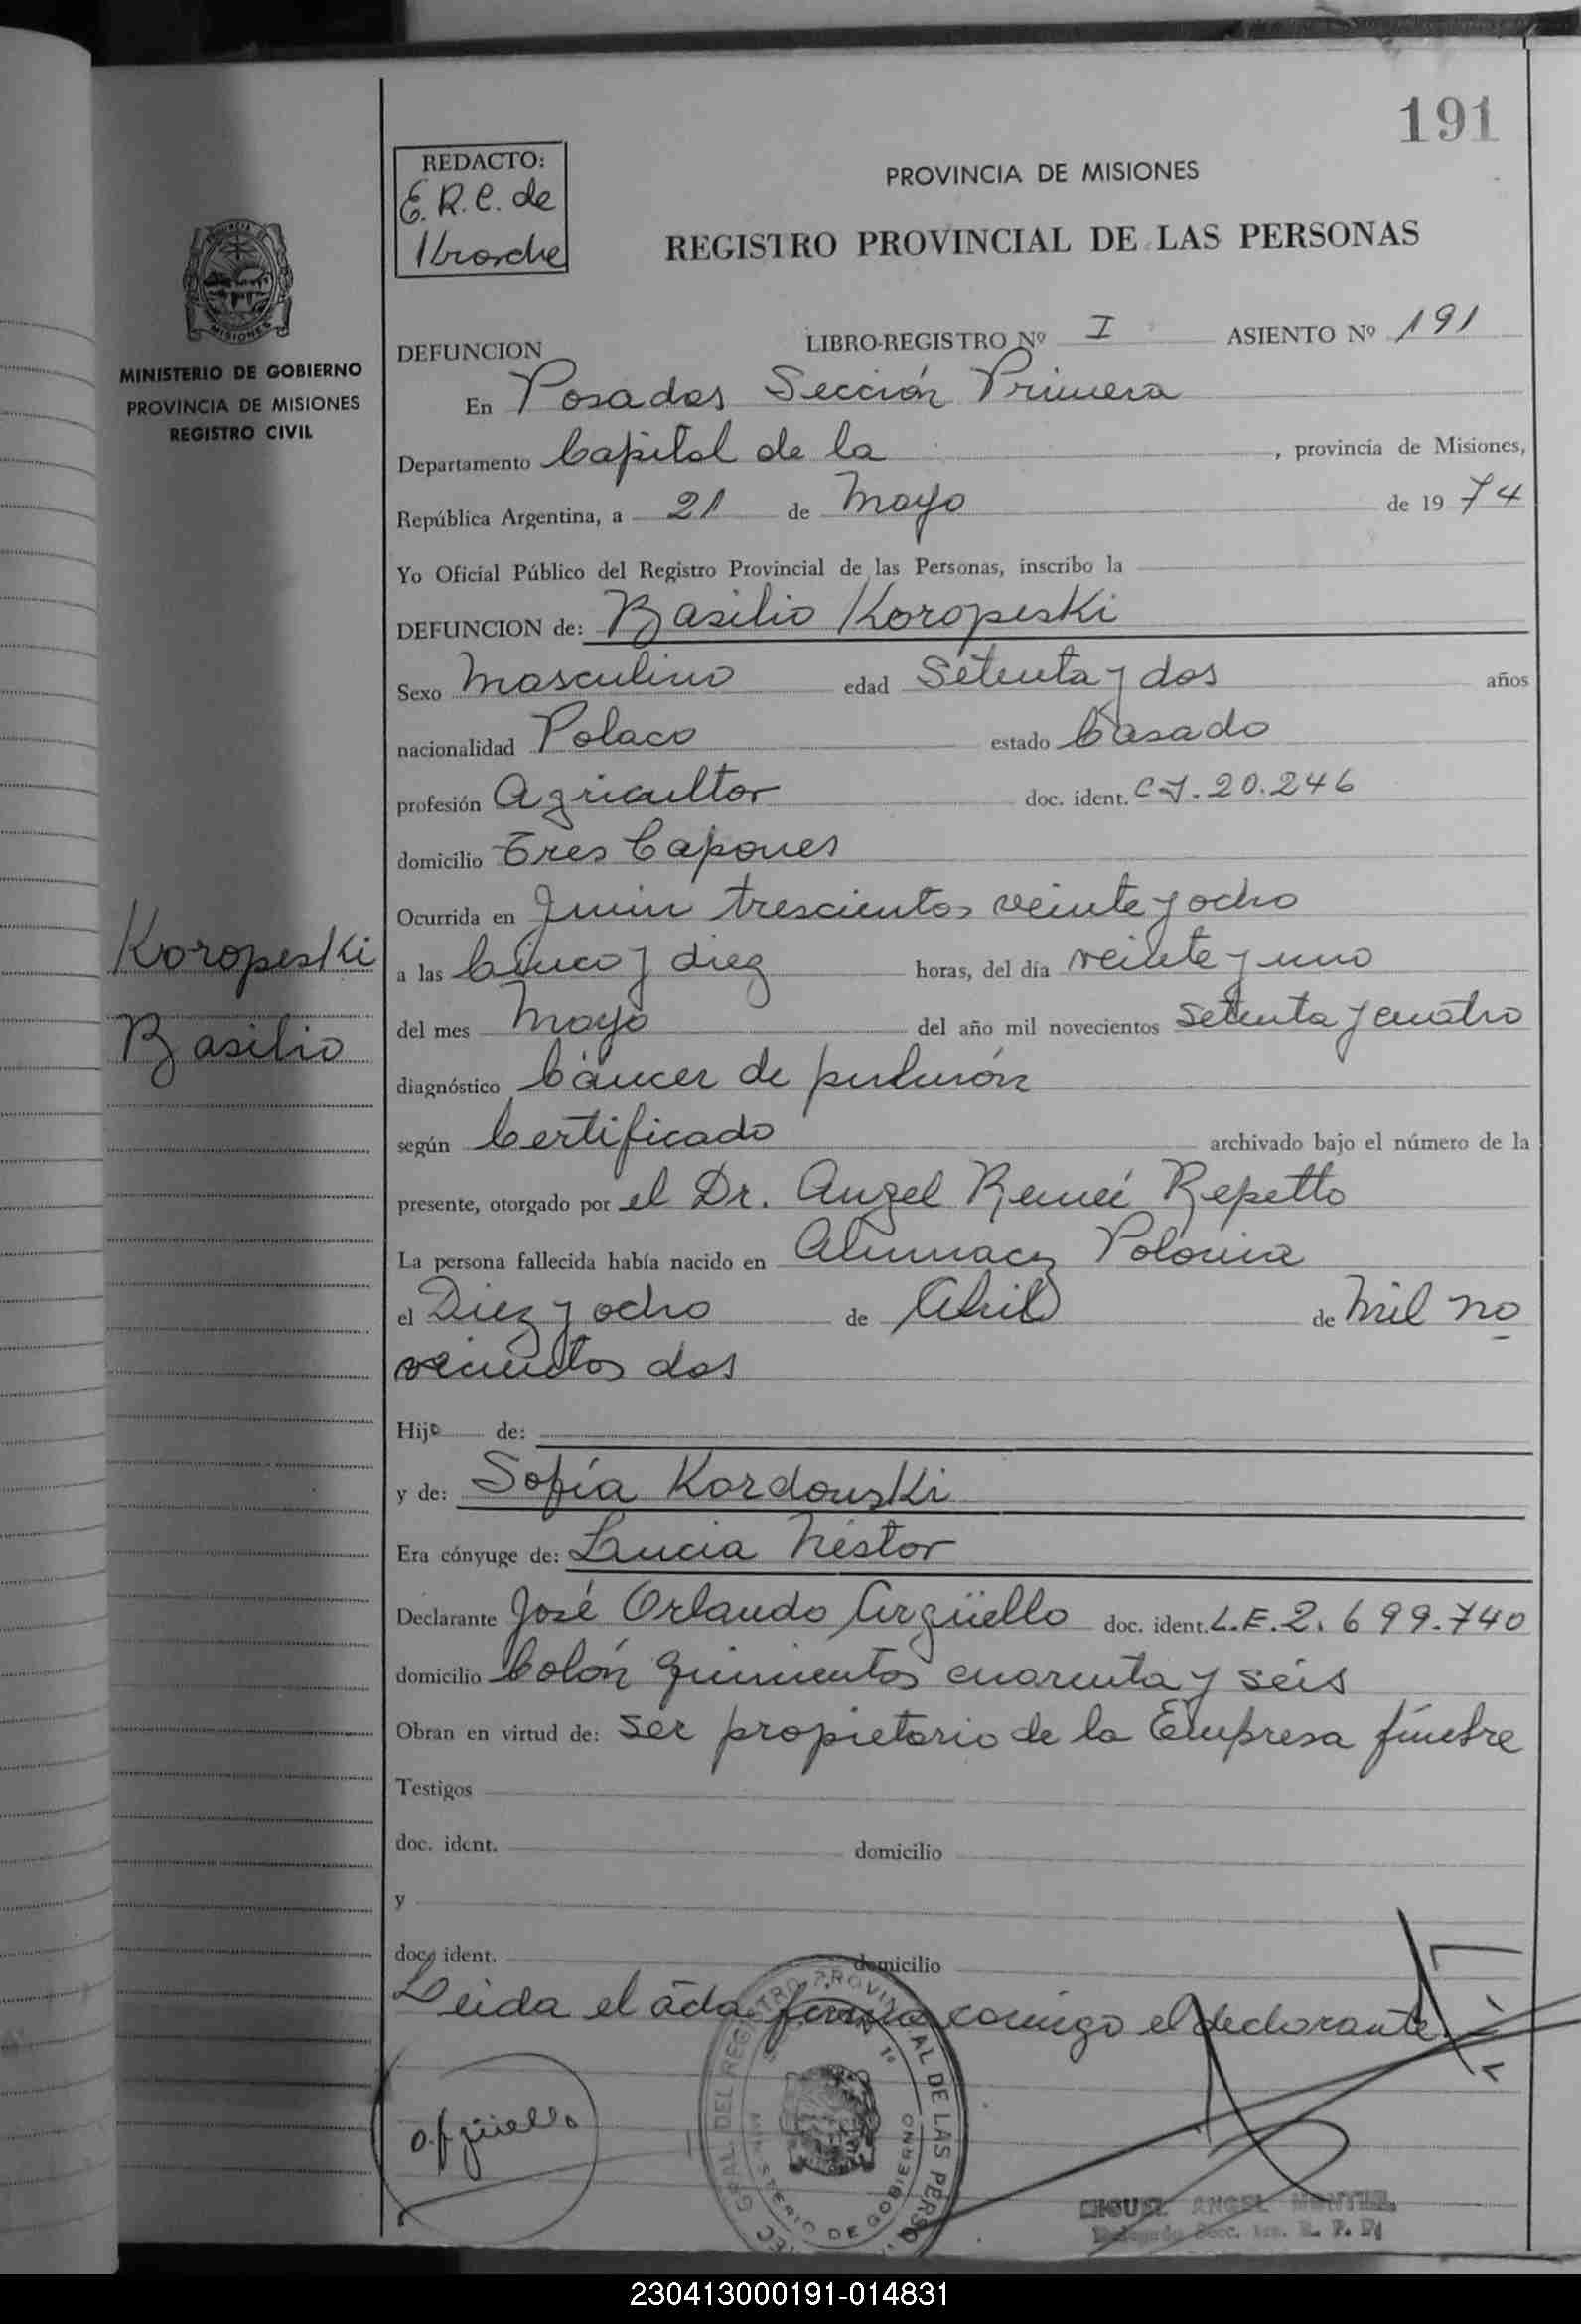 191
REDACTO:
E.R.C. de
Krasche
PROVINCIA DE MISIONES
REGISTRO PROVINCIAL DE LAS PERSONAS
MINISTERIO DE GOBIERNO
PROVINCIA DE MISIONES
REGISTRO CIVIL
DEFUNCION LIBRO-REGISTRO Nº I ASIENTO Nº 191
En Posadas Sección Primera
Departamento Capital de la , provincia de Misiones,
República Argentina, a 21 de Mayo de 19 74
Yo Oficial Público del Registro Provincial de las Personas, inscribo la
DEFUNCION de: Basilio Koropeski
Sexo Masculino edad Setenta y dos años
nacionalidad Polaco estado Casado
profesión Agricultor doc. ident. CI. 20.246
domicilio Tres Capones
Ocurrida en Junin trescientos veinte y ocho
Koropeski
Basilio
a las Cinco y diez horas, del día veinte y uno
del mes Mayo del año mil novecientos setenta y cuatro
diagnóstico Cáncer de pulmón
según Certificado archivado bajo el número de la
presente, otorgado por el Dr. Angel Reneé Repetto
La persona fallecida había nacido en Polonia
el Diez y ocho de Abril de Mil no
vecientos dos
Hijo de:
y de: Sofía Kordouski
Era cónyuge de: Lucia Néstor
Declarante José Orlando Argüello doc. ident. L.E. 2.699.740
domicilio Colón quinientos cuarenta y seis
Obran en virtud de: ser propietario de la Empresa fúnebre
Testigos
doc. ident. domicilio
y
doc. ident. domicilio
Leida el acta firma conmigo el declarante.
O. Argüello
REGISTRO PROVINCIAL DE LAS PERSO
MINISTERIO DE GOBIERNO
MIGUEL ANGEL
230413000191-014831